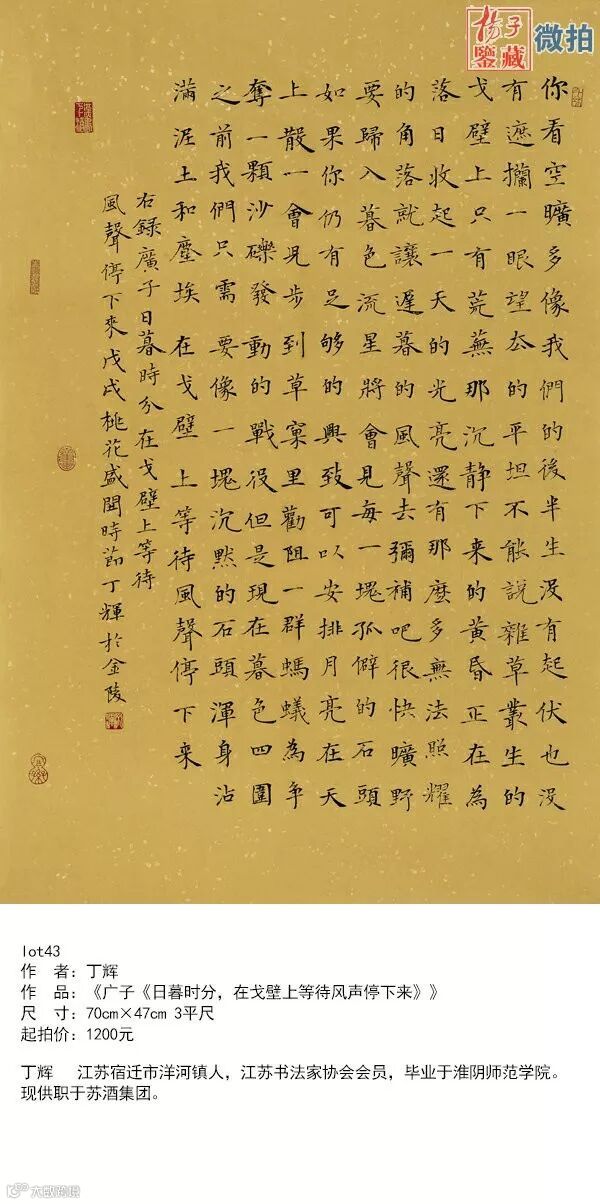 杨子
鉴藏
微拍
你看空曠多像我們的後半生没有起伏也没
有遮攔一眼望去的平坦不能說雜草叢生的
戈壁上只有荒蕪那沉静下来的黄昏正在為
落日收起一天的光亮還有那麼多無法照耀
的角落就讓遲暮的風聲去彌補吧很快曠野
要歸入暮色流星將會見每一塊孤僻的石頭
如果你仍有足够的興致可以安排月亮在天
上散一會兒步到草窠里勸阻一群螞蟻為争
奪一顆沙礫發動的戰役但是現在暮色四圍
之前我們只需要像一塊沉默的石頭渾身沾
滿泥土和塵埃在戈壁上等待風聲停下来
右錄廣子日暮時分在戈壁上等待
風聲停下來戊戌桃花盛開時節丁輝於金陵
lot43
作 者：丁辉
作 品：《广子《日暮时分，在戈壁上等待风声停下来》》
尺 寸：70cm×47cm 3平尺
起拍价：1200元
丁辉 江苏宿迁市洋河镇人，江苏书法家协会会员，毕业于淮阴师范学院。
现供职于苏酒集团。
大欧跨境